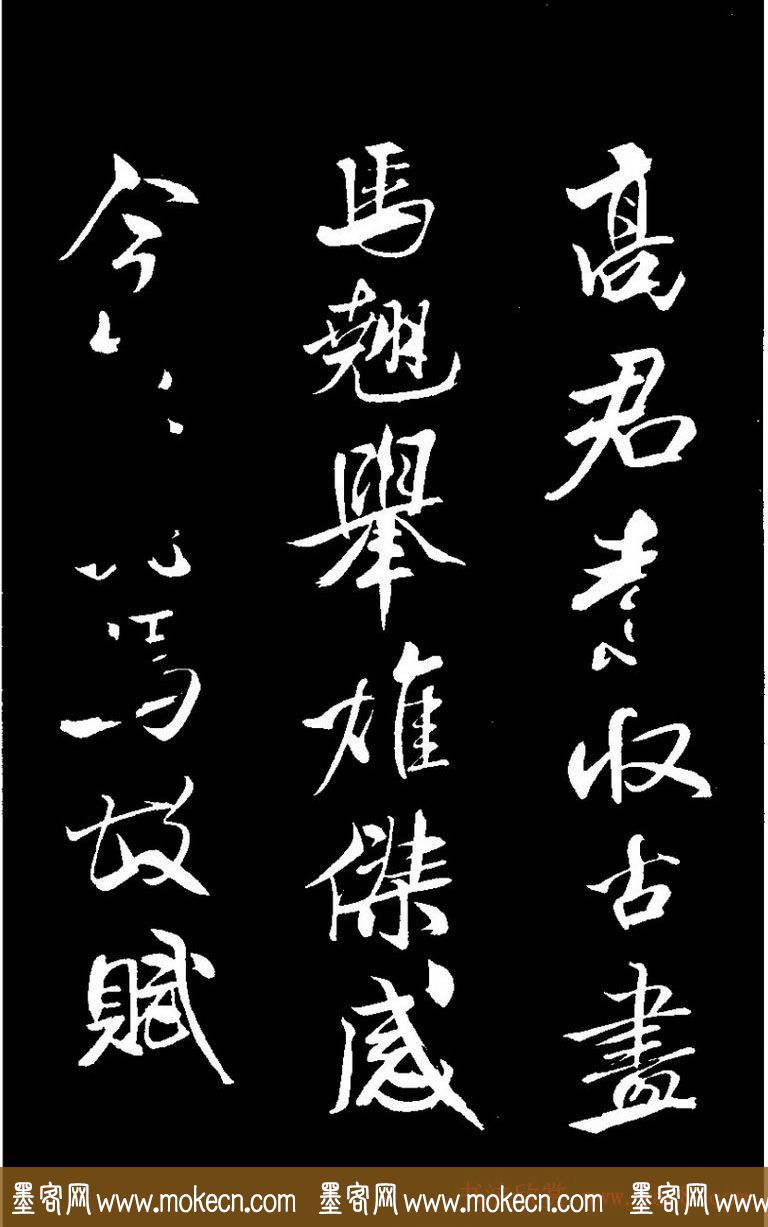 高君素收古畫
馬翹舉雄傑感
今馬故賦
墨客网www.mokecn.com 墨客网www.mokecn.com 墨客网www